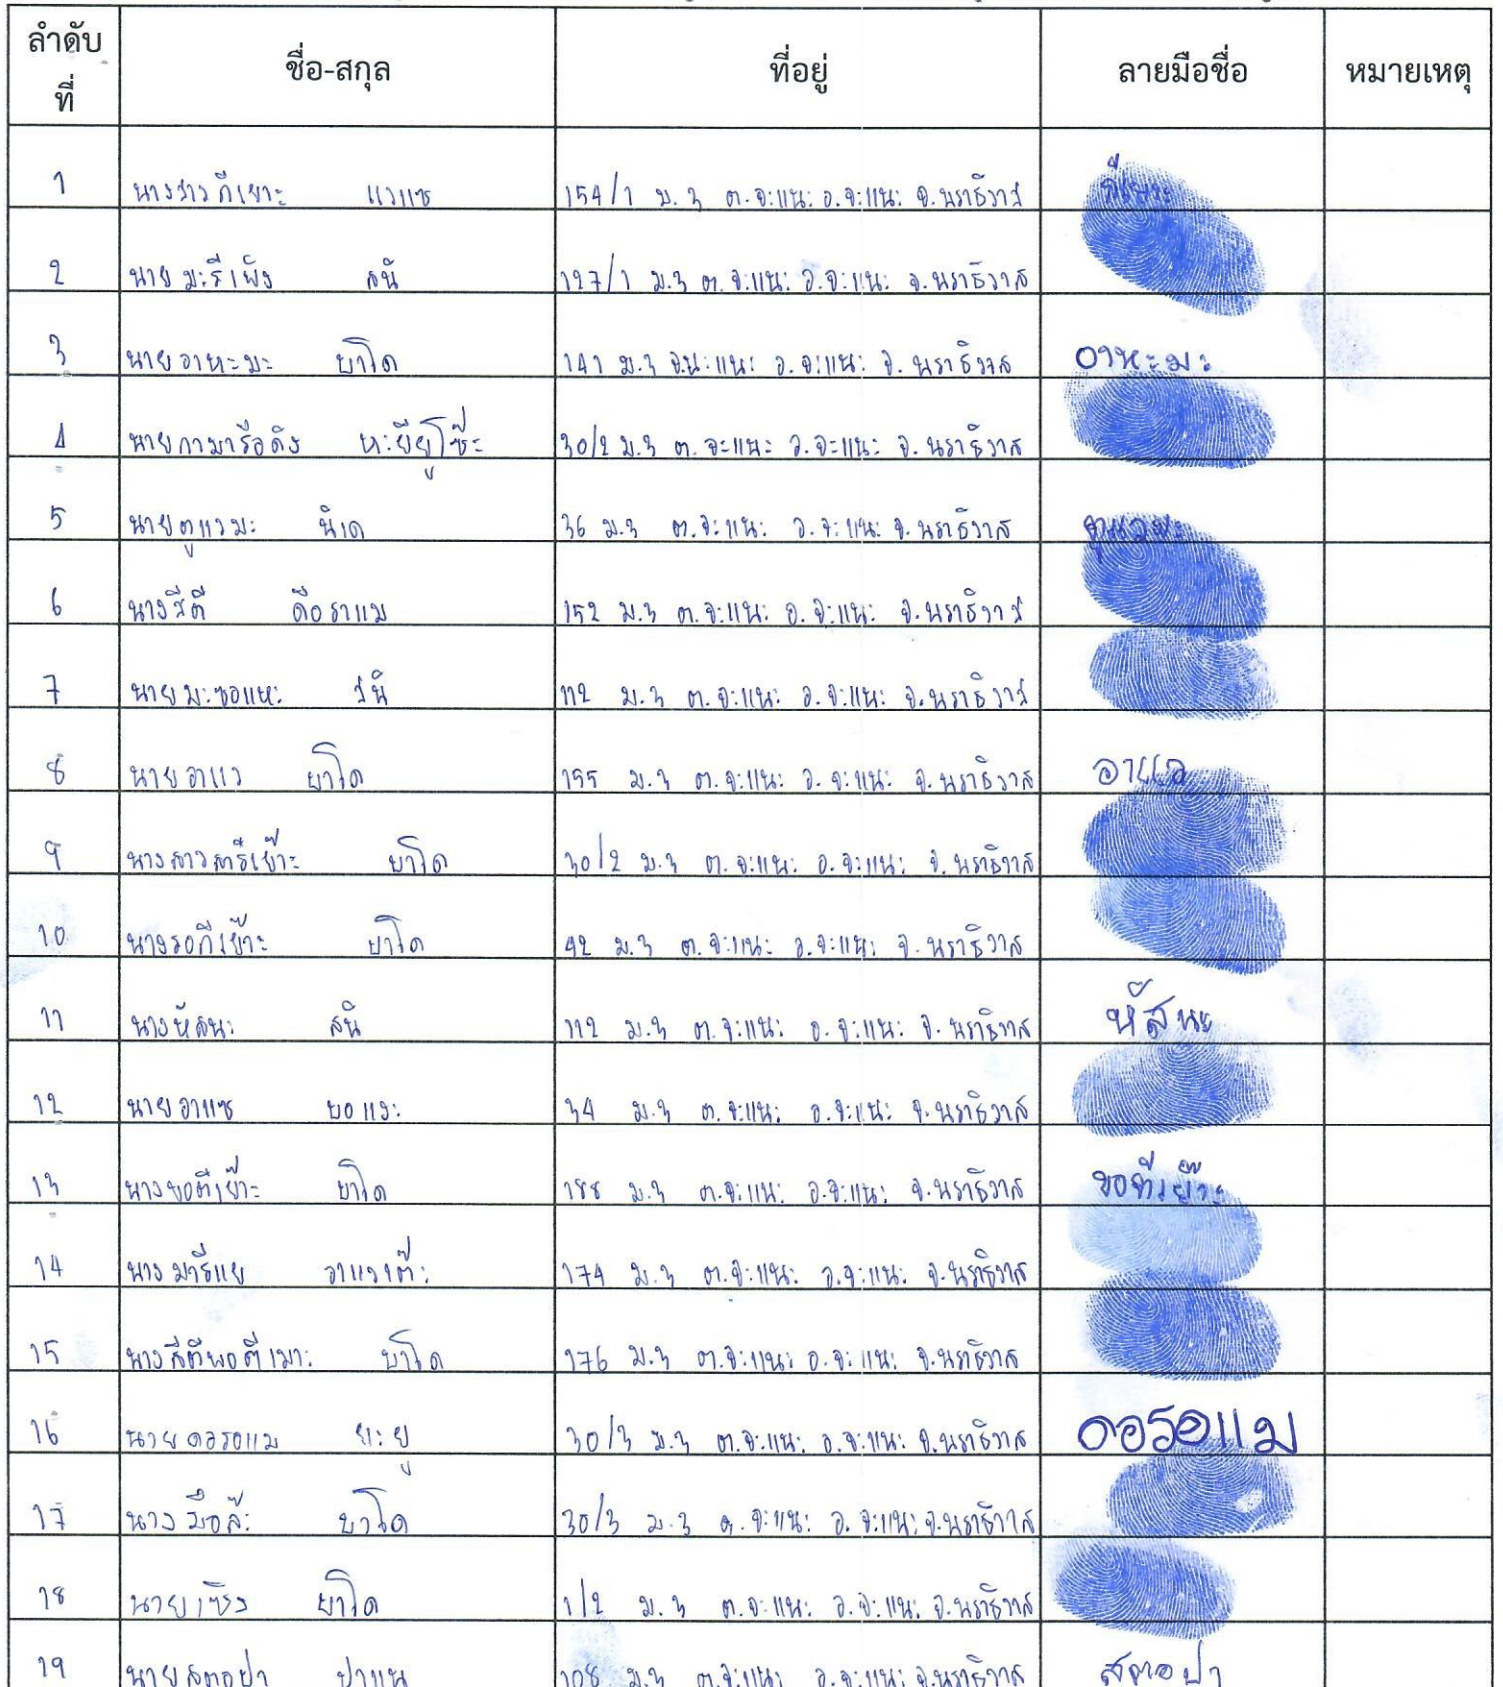 ลำดับ ชื่อ-สกุล ที่อยู่ ลายมือชื่อ หมายเหตุ
ที่
1 นางสาว ตีเยาะ แวแซ 154/1 ม.3 ต.จะแนะ อ.จะแนะ จ.นราธิวาส ตีเยาะ
2 นาย มะรีเพ็ง สนิ 127/1 ม.3 ต.จะแนะ อ.จะแนะ จ.นราธิวาส
3 นายอาหะมะ ยาโด 141 ม.3 อ.จะแนะ จ.นราธิวาส อาหะมะ
4 นายกามารือดิง หะยียูโซ๊ะ 30/2 ม.3 ต.จะแนะ อ.จะแนะ จ.นราธิวาส
5 นายตูแวมะ นิเด 36 ม.3 ต.จะแนะ อ.จะแนะ จ.นราธิวาส ตูแวมะ
6 นางสีตี ดือราแม 152 ม.3 ต.จะแนะ อ.จะแนะ จ.นราธิวาส
7 นายมะซอแหะ สนิ 112 ม.3 ต.จะแนะ อ.จะแนะ จ.นราธิวาส
8 นายอาแว ยาโด 155 ม.3 ต.จะแนะ อ.จะแนะ จ.นราธิวาส อาแว
9 นางสาวสารีเย๊าะ ยาโด 30/2 ม.3 ต.จะแนะ อ.จะแนะ จ.นราธิวาส
10 นางรอกีเย๊าะ ยาโด 42 ม.3 ต.จะแนะ อ.จะแนะ จ.นราธิวาส
11 นางหัสนะ สนิ 112 ม.3 ต.จะแนะ อ.จะแนะ จ.นราธิวาส หัสนะ
12 นายอาแซ บอแงะ 34 ม.3 ต.จะแนะ อ.จะแนะ จ.นราธิวาส
13 ยาโด 188 ม.3 ต.จะแนะ อ.จะแนะ จ.นราธิวาส
14 นางมารีแย อาแวเต๊ะ 174 ม.3 ต.จะแนะ อ.จะแนะ จ.นราธิวาส
15 นางสีตีพอตีเมาะ ยาโด 176 ม.3 ต.จะแนะ อ.จะแนะ จ.นราธิวาส
16 นายดอรอแม ยะยู 30/3 ม.3 ต.จะแนะ อ.จะแนะ จ.นราธิวาส ดอรอแม
17 นางมือล๊ะ ยาโด 30/3 ม.3 ต.จะแนะ อ.จะแนะ จ.นราธิวาส
18 นายเซ็ง ยาโด 1/2 ม.3 ต.จะแนะ อ.จะแนะ จ.นราธิวาส
19 นายสตอปา ปาแน 108 ม.3 ต.จะแนะ อ.จะแนะ จ.นราธิวาส สตอปา